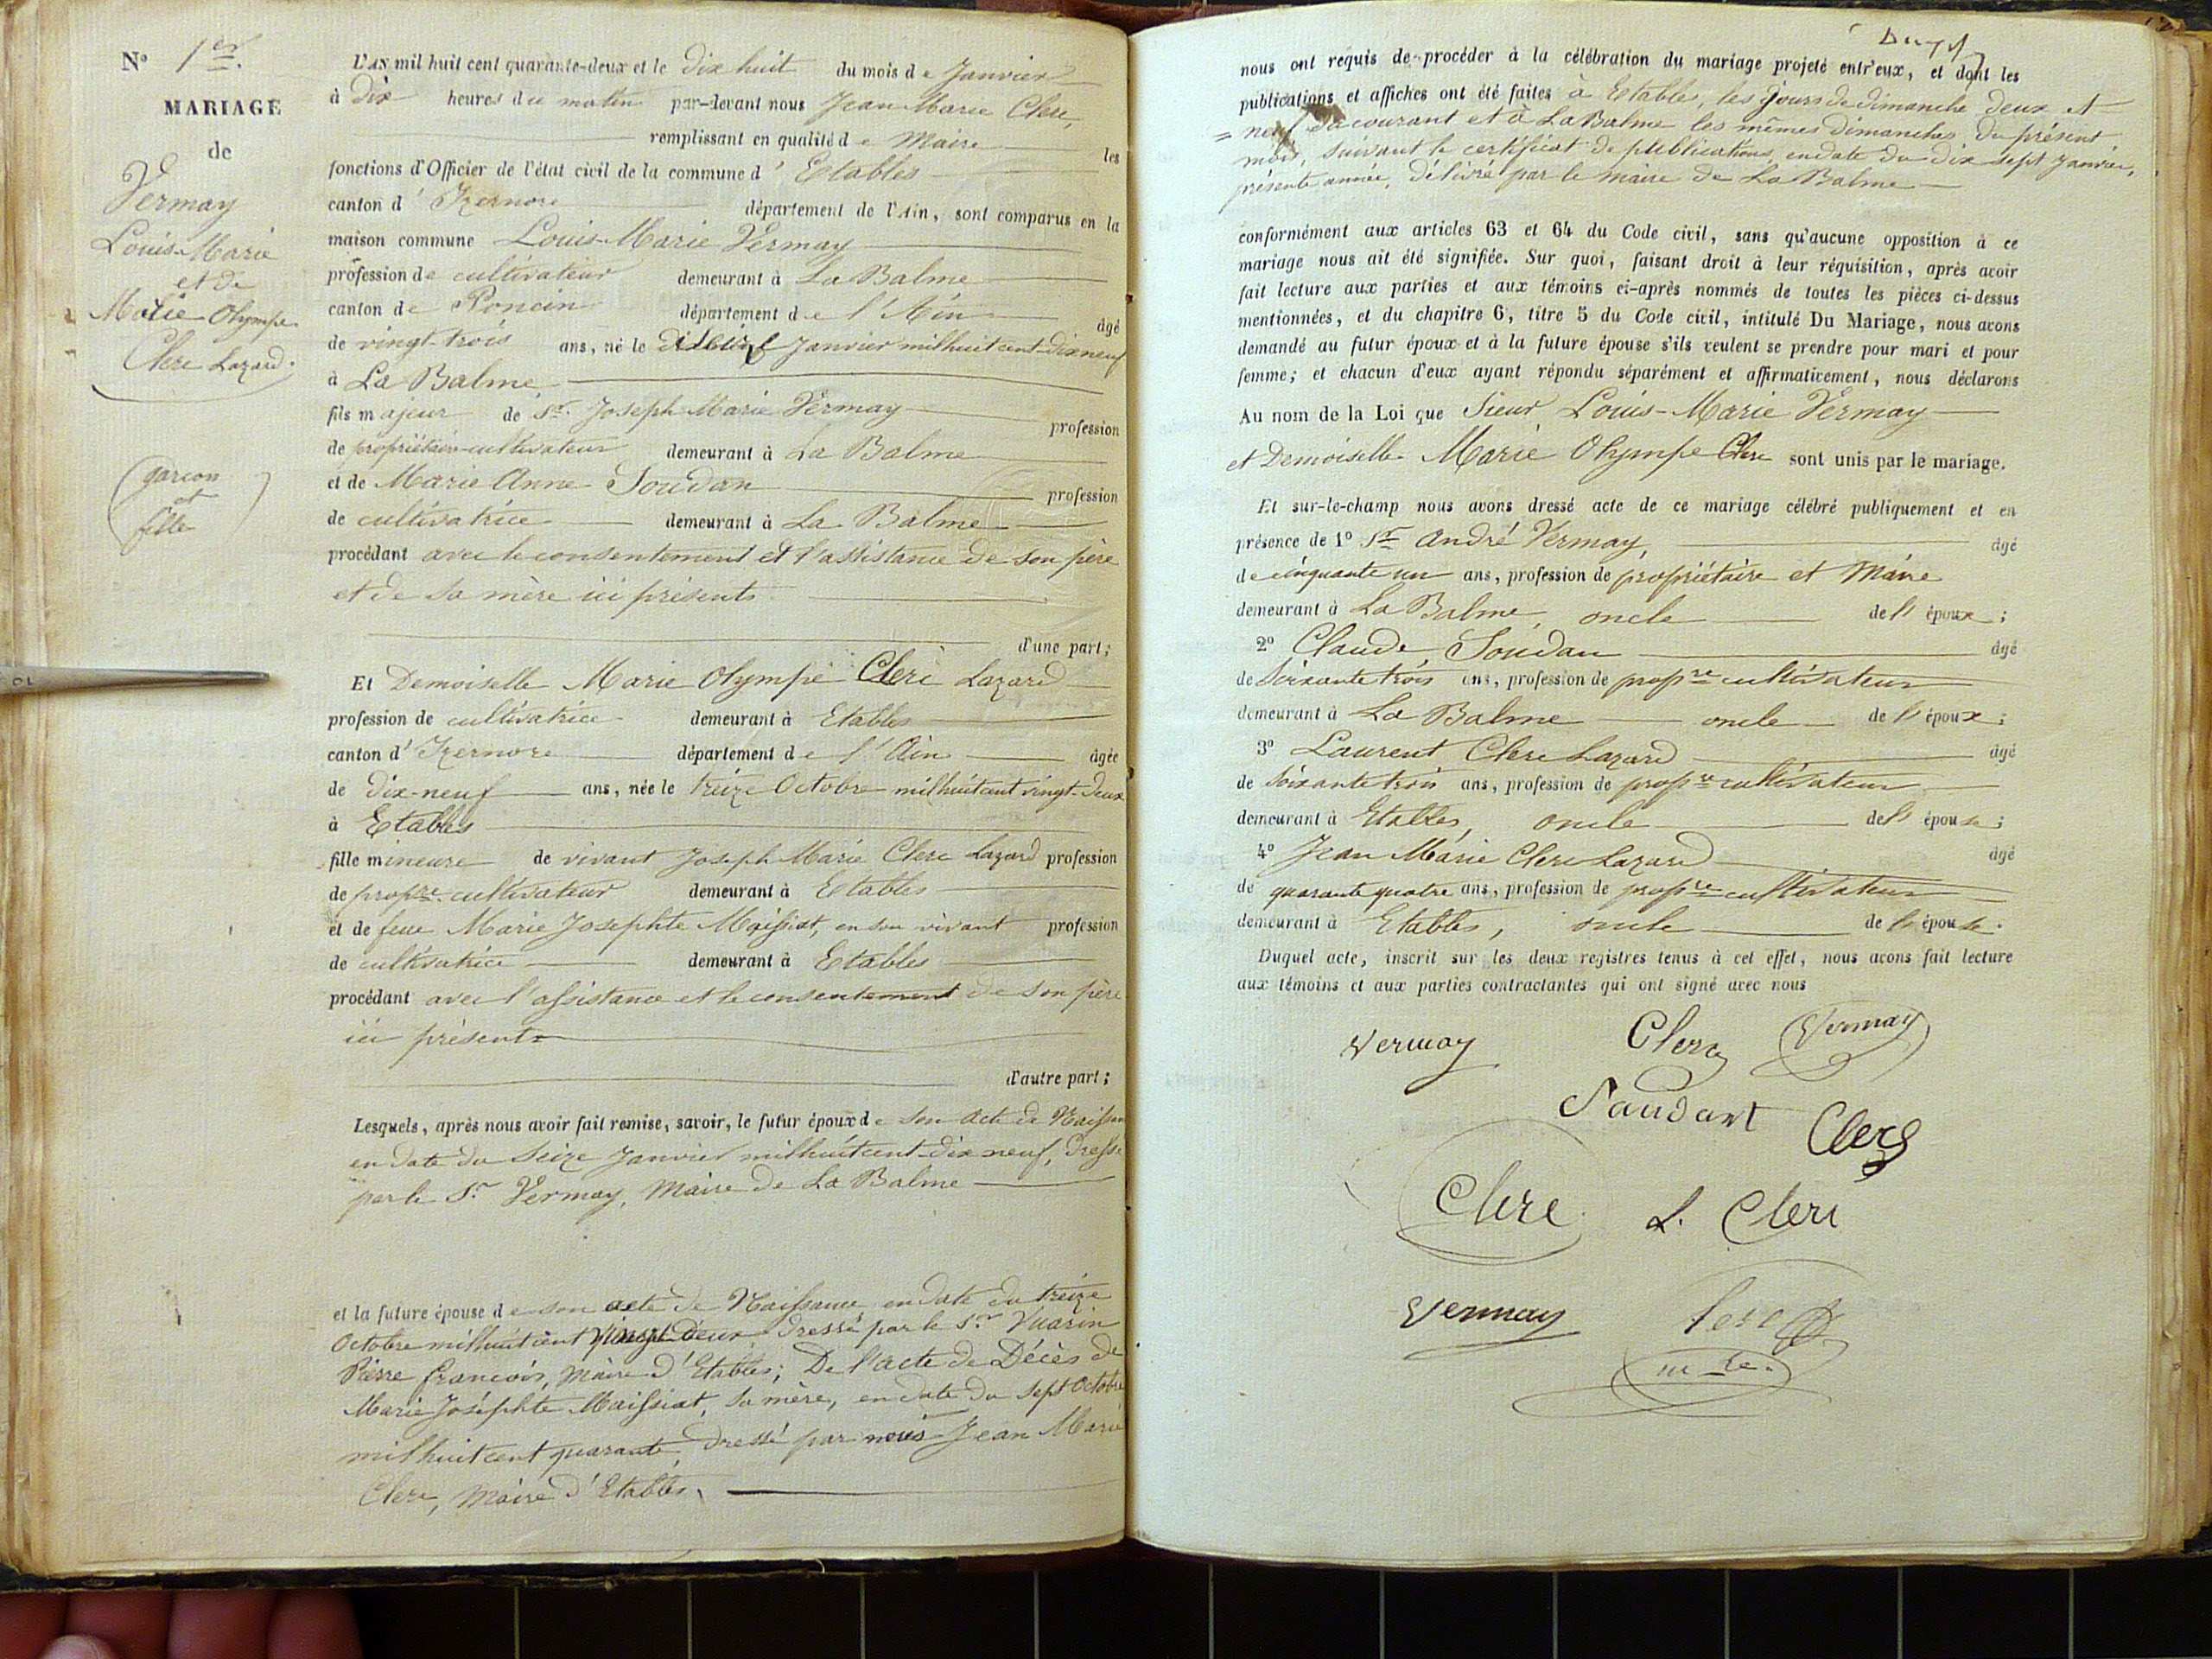 N° 1er.
MARIAGE
de
Vermay
Louis-Marie
et de
Marie Olympe
Clerc Lazard.
(garçon
et
fille)
L'AN mil huit cent quarante-deux et le dix huit du mois de Janvier
à dix heures du matin par-devant nous Jean Marie Clerc,
remplissant en qualité de Maire les
fonctions d'Officier de l'état civil de la commune d'Etables
canton d'Izernore département de l'Ain, sont comparus en la
maison commune Louis-Marie Vermay
profession de cultivateur demeurant à La Balme
canton de Poncin département de l'Ain âgé
de vingt-trois ans, né le Janvier mil huit cent dix neuf
à La Balme
fils majeur de Sr. Joseph Marie Vermay profession
de propriétaire-cultivateur demeurant à La Balme
et de Marie Anne Soudan profession
de cultivatrice demeurant à La Balme
procédant avec le consentement et l'assistance de son père
et de sa mère ici présents
d'une part;
Et Demoiselle Marie Olympe Clerc Lazard
profession de cultivatrice demeurant à Etables
canton d'Izernore département de l'Ain âgée
de dix-neuf ans, née le treize Octobre mil huit cent vingt-deux
à Etables
fille mineure de vivant Joseph Marie Clerc Lazard profession
de propre. cultivateur demeurant à Etables
et de feue Marie Josephte Maissiat, en son vivant profession
de cultivatrice demeurant à Etables
procédant avec l'assistance et le consentement de son père
ici présents
d'autre part;
Lesquels, après nous avoir fait remise, savoir, le futur époux de son acte de Naissan
en date du Seize Janvier mil huit cent dix neuf, Dressé
par le Sr Vermay, Maire de La Balme
et la future épouse de son acte de Naissance en date du treize
Octobre mil huit cent vingt deux dressé par le Sr Vuarin
Pierre François, Maire d'Etables; De l'acte de Décès de
Marie Josephte Maissiat, sa mère, en date du sept Octobre
mil huit cent quarante, dressé par nous Jean Marie
Clerc, Maire d'Etables.
nous ont requis de procéder à la célébration du mariage projeté entr'eux, et dont les
publications et affiches ont été faites à Etables, les jours de dimanche deux et
= neuf du courant et à La Balme les mêmes dimanches du présent
mois, suivant le certificat de publications, en date du dix sept Janvier,
présente année, délivré par le maire de La Balme
conformément aux articles 63 et 64 du Code civil, sans qu'aucune opposition à ce
mariage nous ait été signifiée. Sur quoi, faisant droit à leur réquisition, après avoir
fait lecture aux parties et aux témoins ci-après nommés de toutes les pièces ci-dessus
mentionnées, et du chapitre 6, titre 5 du Code civil, intitulé Du Mariage, nous avons
demandé au futur époux et à la future épouse s'ils veulent se prendre pour mari et pour
femme; et chacun d'eux ayant répondu séparément et affirmativement, nous déclarons
Au nom de la Loi que Sieur Louis-Marie Vermay
et Demoiselle Marie Olympe Clerc sont unis par le mariage.
Et sur-le-champ nous avons dressé acte de ce mariage célébré publiquement et en
présence de 1° Sr André Vermay, âgé
de cinquante un ans, profession de propriétaire et Maire
demeurant à La Balme, oncle de l'époux;
2° Claude Soudan âgé
de Soixante trois ans, profession de propre cultivateur
demeurant à La Balme oncle de l'époux;
3° Laurent Clerc Lazard âgé
de soixante trois ans, profession de propre cultivateur
demeurant à Etables, oncle de l'épouse;
4° Jean Marie Clerc Lazard âgé
de quarante quatre ans, profession de propre cultivateur
demeurant à Etables, oncle de l'épouse.
Duquel acte, inscrit sur les deux registres tenus à cet effet, nous avons fait lecture
aux témoins et aux parties contractantes qui ont signé avec nous
Vermay Clerc Vermay
Saudant Clerc
Clerc L. Clerc
Vermay Clerc